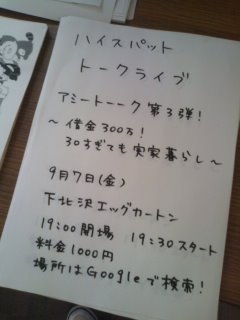 ハイスパット
トークライブ
アミートーーク第3弾！
～借金300万！
30すぎても実家暮らし～
9月7日(金)
下北沢エッグカートン
19:00開場 19:30スタート
料金1000円
場所はGoogleで検索！